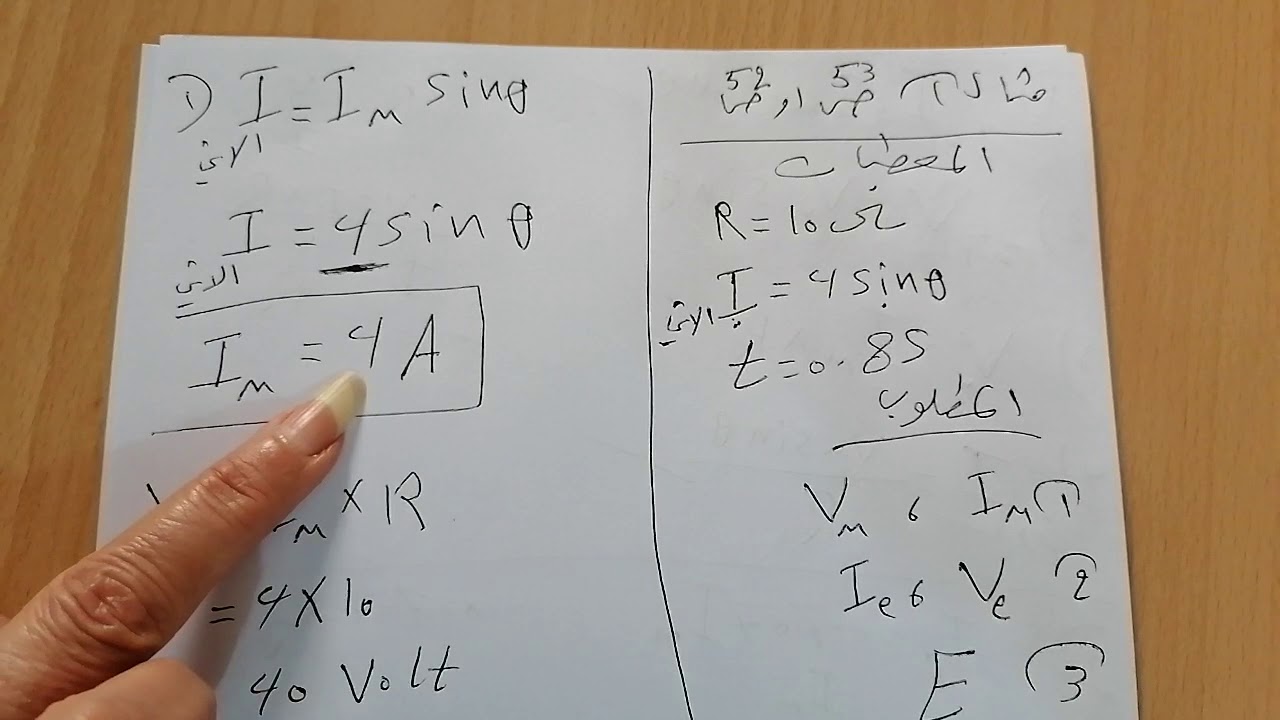 مثال ٣ ص 53 او ص 52
المعطيات
R = 10 Ω
I الاني = 4 sinθ
t = 0.8 S
المطلوب
1) I_M , V_m
2) V_e , I_e
3) E
1) I الاني = I_M sinθ
I الاني = 4 sin θ
I_M = 4 A
M × R
= 4 × 10
40 Volt